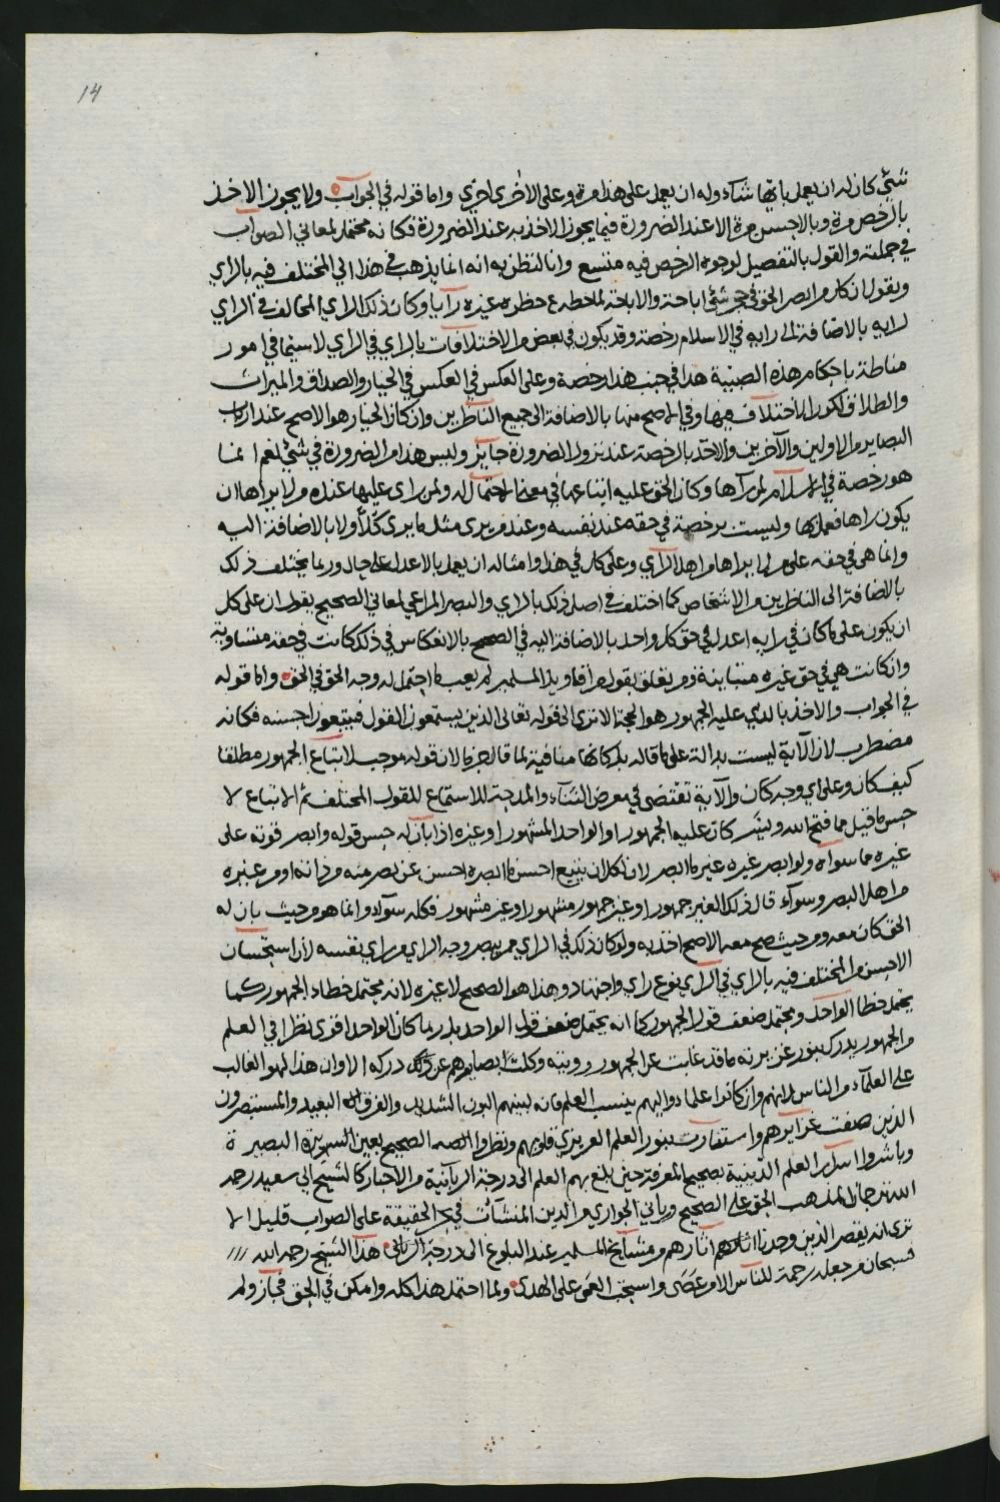 14
شيء كان له ان يعمل بايها شاء وله ان يعمل على هذا مرة وعلى الاخرى اخرى واما قوله في الجواب ولا يجوز الاخذ
بالرخص مرة وبالاحسن مرة الا عند الضرورة فيما يجوز الاخذ به عند الضرورة فكانه محتمل لمعاني الصواب
في جملته والقول بالتفصيل لوجوه الرخص فيه متسع وانا لنظن به انه انما يذهب في هذا الى المختلف فيه بالراي
ونقول ان كل من ابصر الحق في شيء اباحة والاباحة لما حظره غيره رايا وكان ذلك الراي المخالف في الراي
لرايه بالاضافة الى رايه في الاسلام رخصة وقد يكون في بعض الاختلافات بالراي في الراي لا سيما في امور
مناطة باحكام هذه هذا في جنب هذا رخصة وعلى العكس في العكس في الخيار والصداق والميراث
والطلاق لكون الاختلاف فيها وفي الاصح منها بالاضافة الى جميع الناظرين وان كان الخيار هو الاصح عند ارباب
البصاير من الاولين والآخرين والاخذ بالرخصة عند نزول الضرورة جايز وليس هذا من الضرورة في شيء نعم انما
هو رخصة في الاسلام لمن رآها وكان الحق عليه اتباعها في معنى الاحتمال له ولمن راى عليها عنده من لم يراها ان
يكون راها فعمل بها وليست برخصة في حقه عند نفسه وعند من يرى مثل ما يرى كلا ولا بالاضافة اليه
وانما هي في حقه على من لم يراها من اهل الراي وعلى كل في هذا وامثاله ان يعمل بالاعدل على حال وربما يختلف ذلك
بالاضافة الى الناظرين من الاشخاص كما اختلف في اصل ذلك بالراي والبصر المراعي لمعاني الصحيح يقول ان على كل
ان يكون على ما كان في رايه اعدل في حق كل واحد بالاضافة اليه في الصحيح بالانعكاس في ذلك كانت في حقه متساوية
وان كانت هي في حق غيره متباينة ومن تعلق بقول من اقاويل المسلمين لم يعب ما احتمل له وجه الحق في الحق واما قوله
في الجواب والاخذ بالذي عليه الجمهور هو الحجة الا ترى الى قوله تعالى الذين يستمعون القول فيتبعون احسنه فكانه
مضطرب لان الآية ليست بدالة على ما قاله بل كانها منافية لما قاله جزما لان قوله موجب لاتباع الجمهور مطلقا
كيف كان وعلى اي وجه كان والآية تقتضي في معرض الثناء والمدحة للاستماع للقول المختلف ثم الاتباع لا
حسن ما قيل مما فتح الله ويسر كان عليه الجمهور او الواحد المشهور او غيره اذا بان له حسن قوله وابصر قوته على
غيره مما سواه ولو ابصر غيره غير ما ابصر لان لكل ان يتبع احسن ما ابصره احسن عن بصر منه من ذاته او من غيره
من اهل البصر وسواء قال ذلك الغير جمهور او غير جمهور مشهور او غير مشهور فكله سواء وانما هو من حيث بان له
الحق كان معه ومن حيث صح معه الاصح اخذ به ولو كان ذلك في الراي ممن يبصر وجه الراي من راي نفسه لان استحسان
الاحسن من المختلف فيه بالراي في الراي نوع راي واجتهاد وهذا هو الصحيح لا غيره لانه محتمل خطاء الجمهور كما
يحتمل خطا الواحد ومحتمل ضعف قول الجمهور كما انه يحتمل ضعف قول الواحد بل ربما كان الواحد اقوى نظرا في العلم
من الجمهور يدرك بنور غزيرته ما قد غابت عن الجمهور رويته وكلت ابصايرهم عن ذلك دركه الا وان هذا لهو الغالب
على العلماء من الناس لانهم وان كانوا علماء واليهم ينسب العلم فانه لبينهم البون الشديد والفرق البعيد والمستبصرون
الذين صفت غزايرهم واستنارت بنور العلم العزيزي قلوبهم ونظروا الصحيح بعين البصيرة
وباشروا اسرار العلم الدينية بصحيح المعرفة حين بلغ بهم العلم الى درجة الربانية من الاحبار كالشيخ ابي سعيد رحمه
الله ترجمان المذهب الحق على الصحيح ورباني الجواري من الدين المنشآت في بحر الحقيقة على الصواب قليل الا
ترى انه يقصر الذين وجدنا آثارهم من مشايخ المسلمين عند البلوغ الى درجة الرباني هذا الشيخ رحمه الله
فسبحان من جعله رحمة للناس الا من عصى واستحب العمى على الهدى ولما احتمل هذا كله وامكن في الحق فجاز ولم